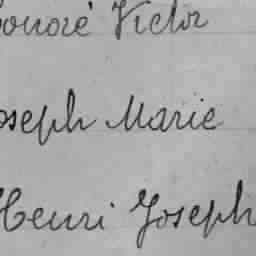 Honoré Victor
Joseph Marie
Henri Joseph